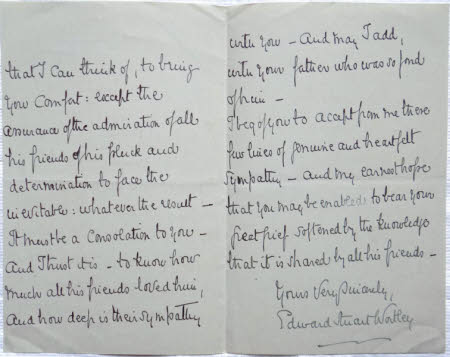 that I can think of, to bring
you comfort: except the
assurance of the admiration of all
his friends of his pluck and
determination to face the
inevitable: whatever the result –
It must be a consolation to you –
And I trust it is – to know how
much all his friends loved him,
And how deep is their sympathy
with you – And may I add,
with your father who was so fond
of him –
I beg of you to accept from me these
few lines of genuine and heartfelt
sympathy – and my earnest hope
that you may be enabled to bear your
great grief softened by the knowledge
that it is shared by all his friends –
Yours Very Sincerely,
Edward Stuart Wortley